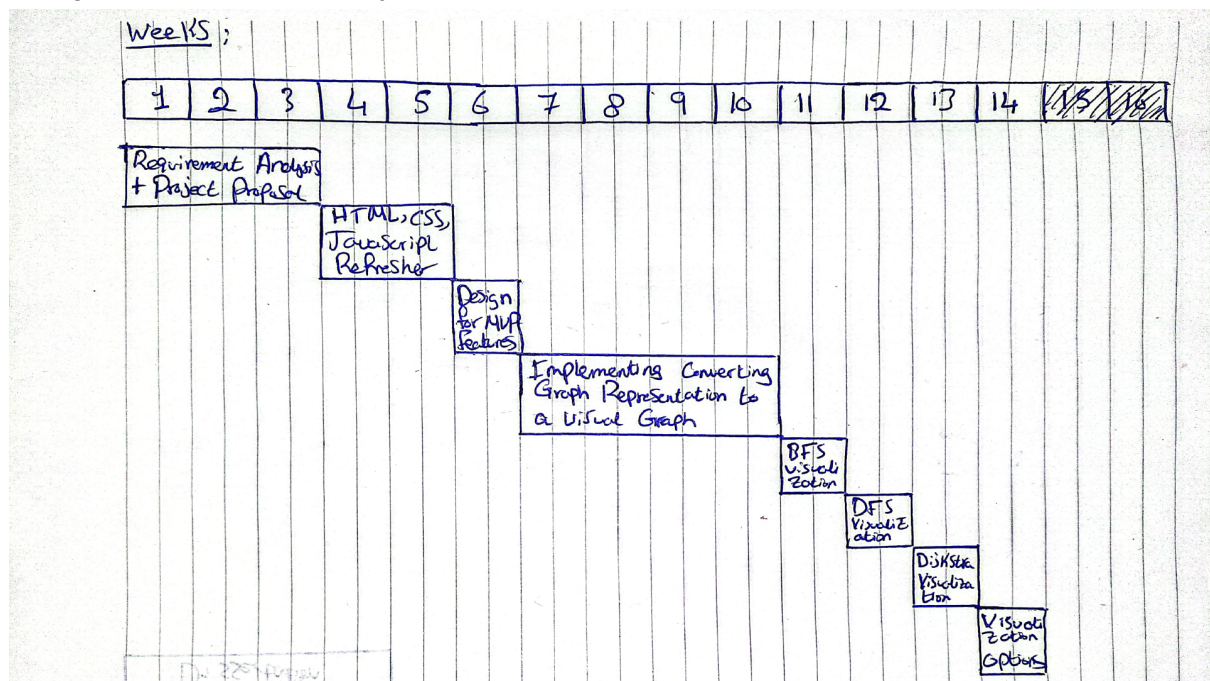 Weeks;
1 2 3 4 5 6 7 8 9 10 11 12 13 14 15 16
Requirement Analysis
+ Project Proposal
HTML, CSS,
JavaScript
Refresher
Design
for MVP
features
Implementing Converting
Graph Representation to
a Visual Graph
BFS
visuali
zation
DFS
Visualiz
ation
Dijkstra
Visualiza
tion
Visuali
zation
options